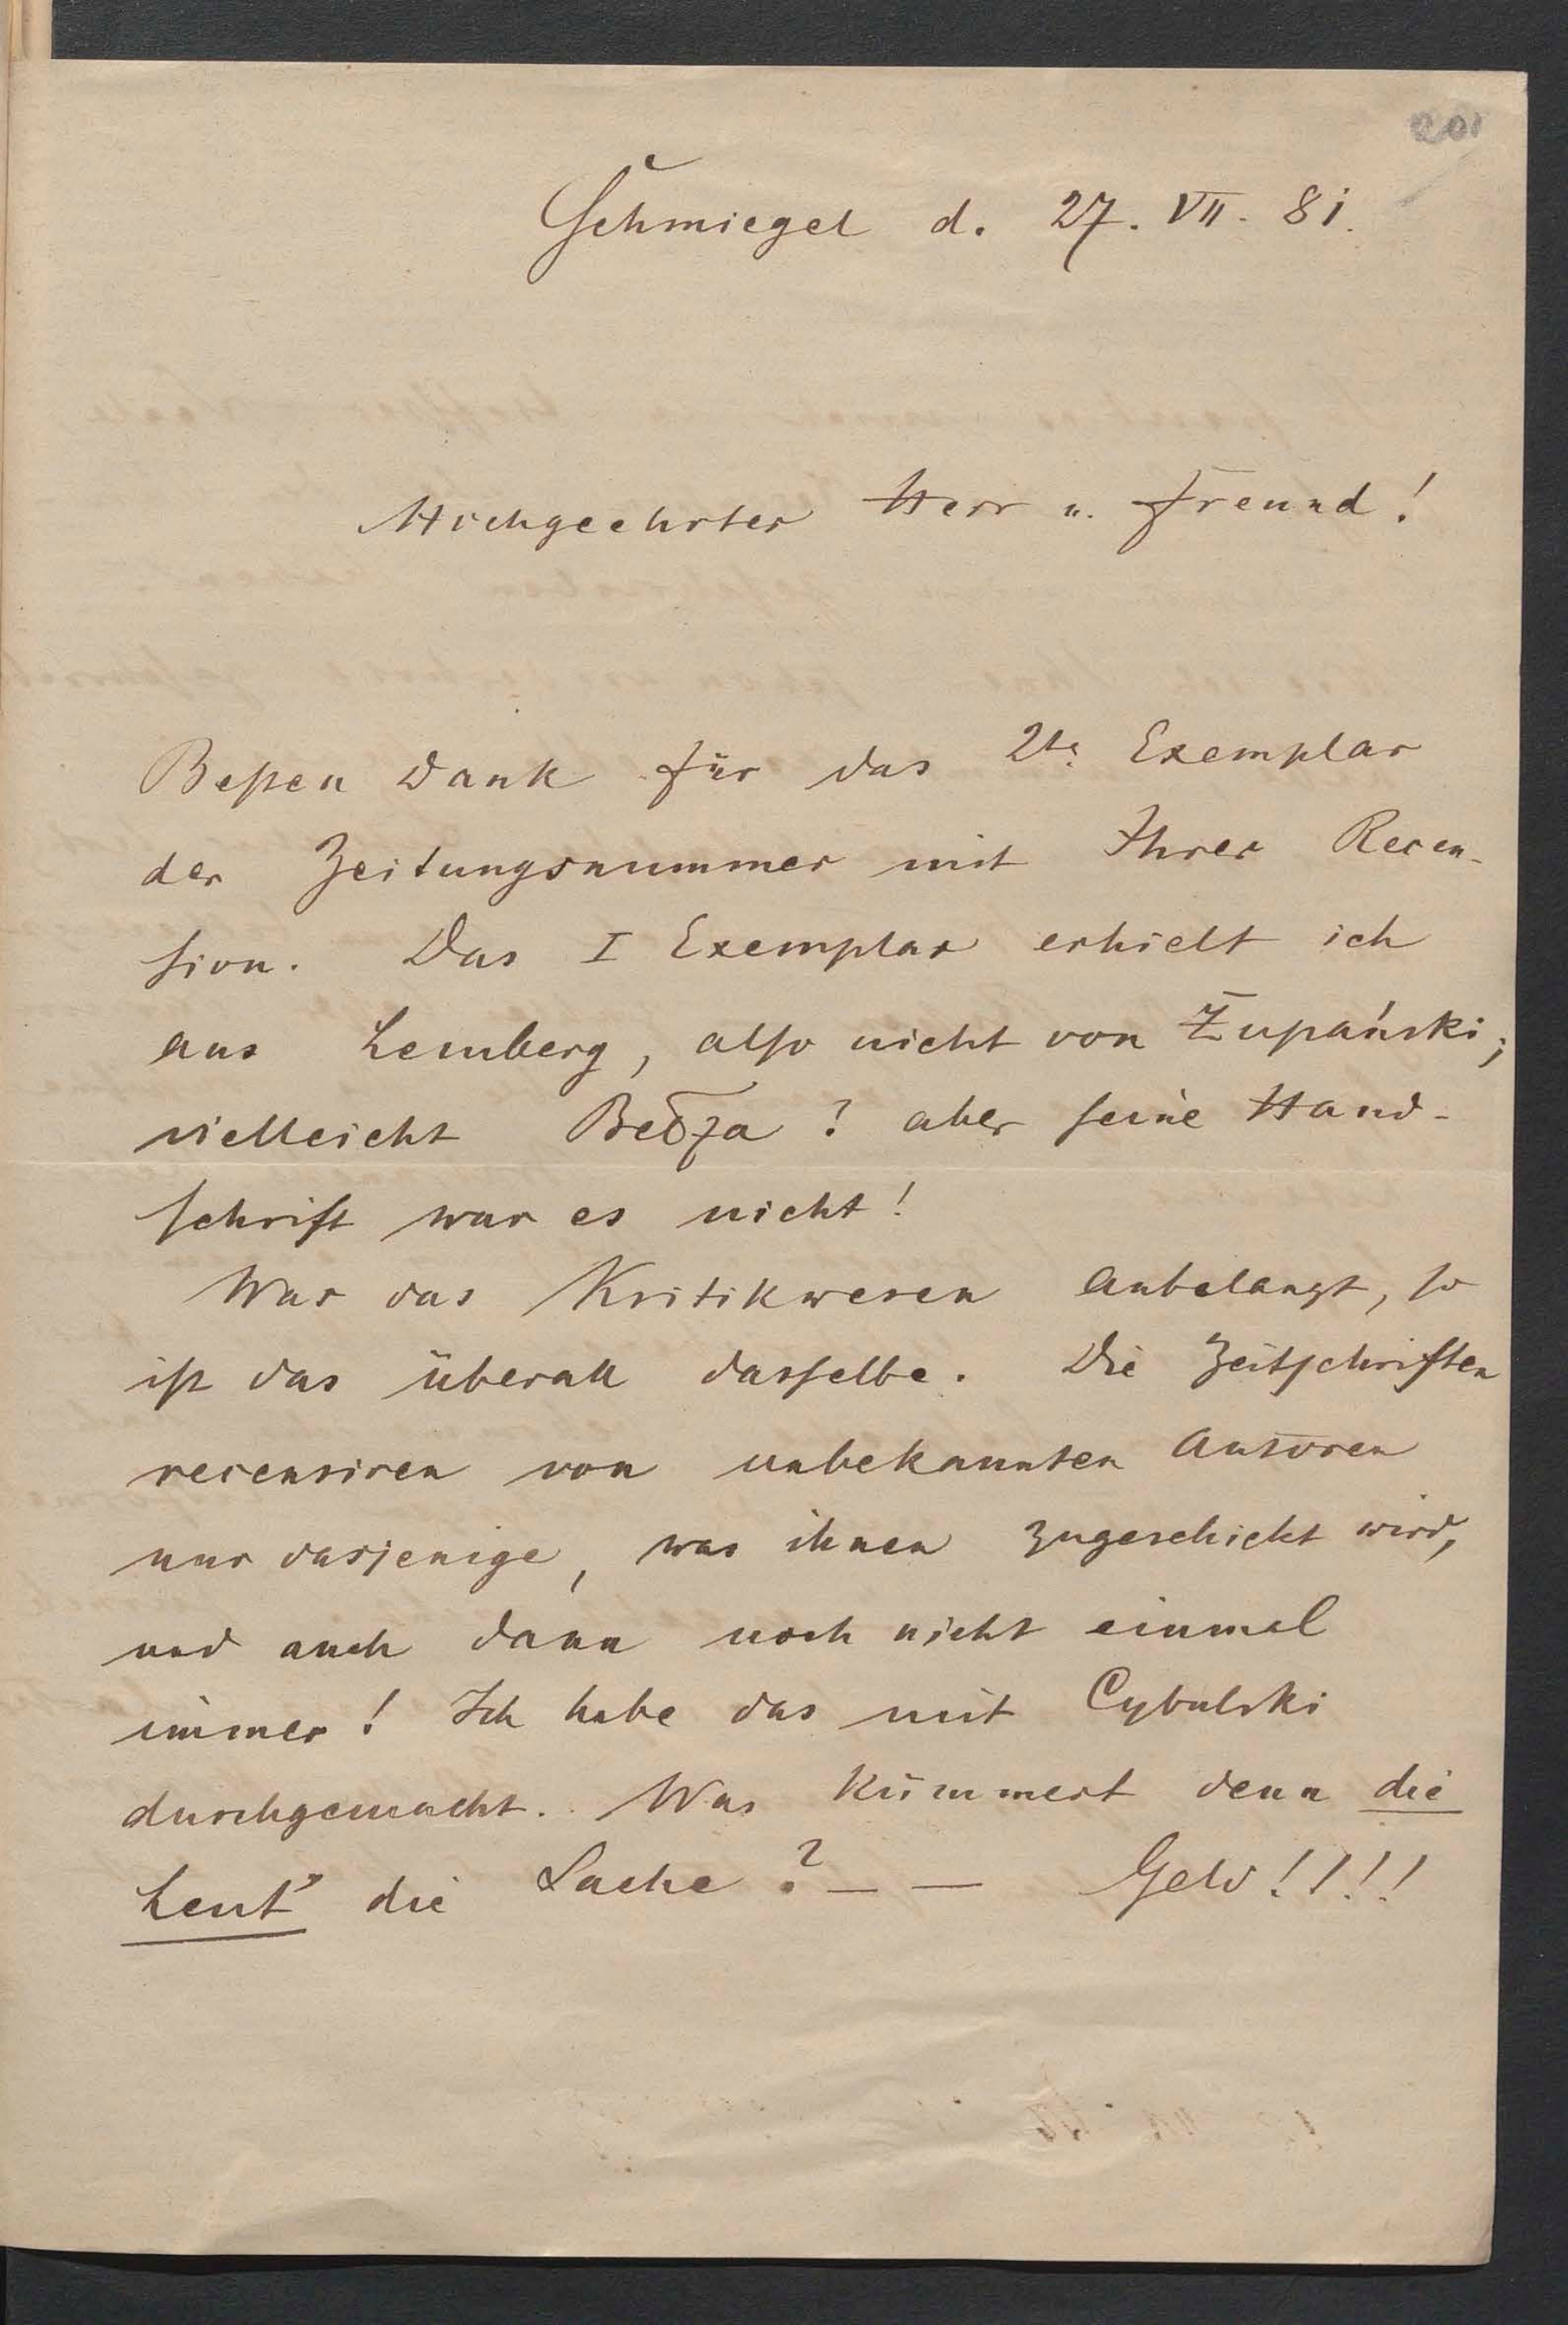 201
Schmiegel d. 27. VII. 81.
Hochgeehrter Herr u. Freund!
Besten Dank für das 2te Exemplar
der Zeitungsnummer mit Ihrer Recen-
sion. Das I Exemplar erhielt ich
aus Lemberg, also nicht von Żupański;
vielleicht ? aber seine Hand-
schrift war es nicht!
Was das Kritikwesen anbelangt, so
ist das überall dasselbe. Die Zeitschriften
recensiren von unbekannten Autoren
nur dasjenige, was ihnen zugeschickt wird,
und auch dann noch nicht einmal
immer! Ich habe das mit Cybulski
durchgemacht. Was kümmert denn die
Leut' die Sache? — — Geld!!!!